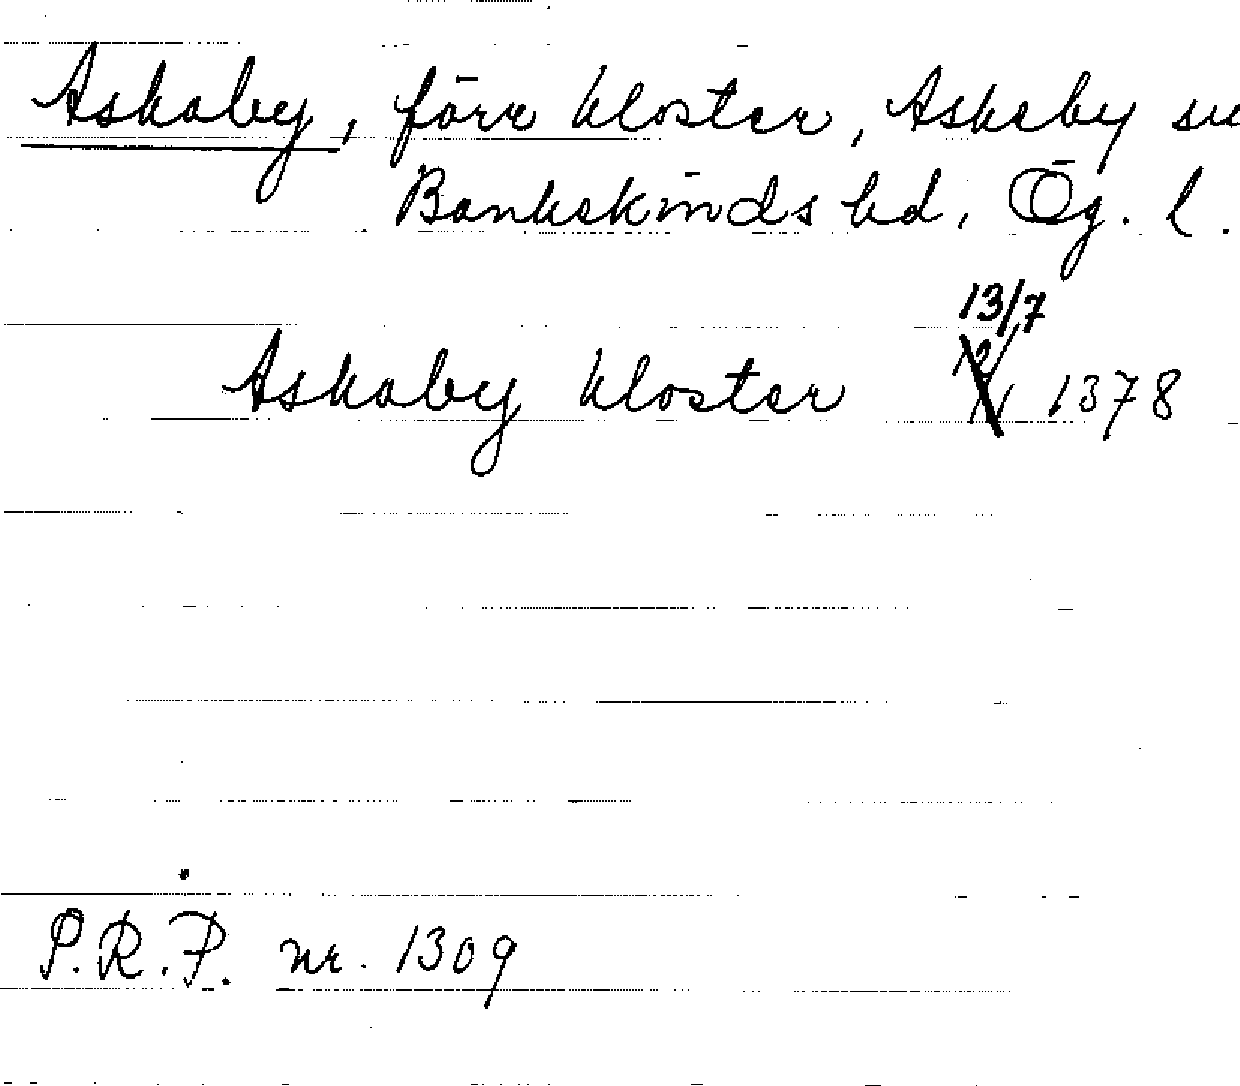 Askaby, förr kloster, Askeby sn
Bankekinds hd, Ög. l.
13/7
Askaby kloster 1378
P.R.P. nr. 1309